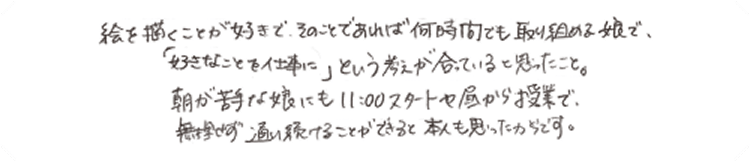 絵を描くことが好きで、そのことであれば何時間でも取り組める娘で、
「好きなことを仕事に」という考えが合っていると思ったこと。
朝が苦手な娘にも11:00スタートや昼から授業で、
無理せず通い続けることができると本人も思ったからです。